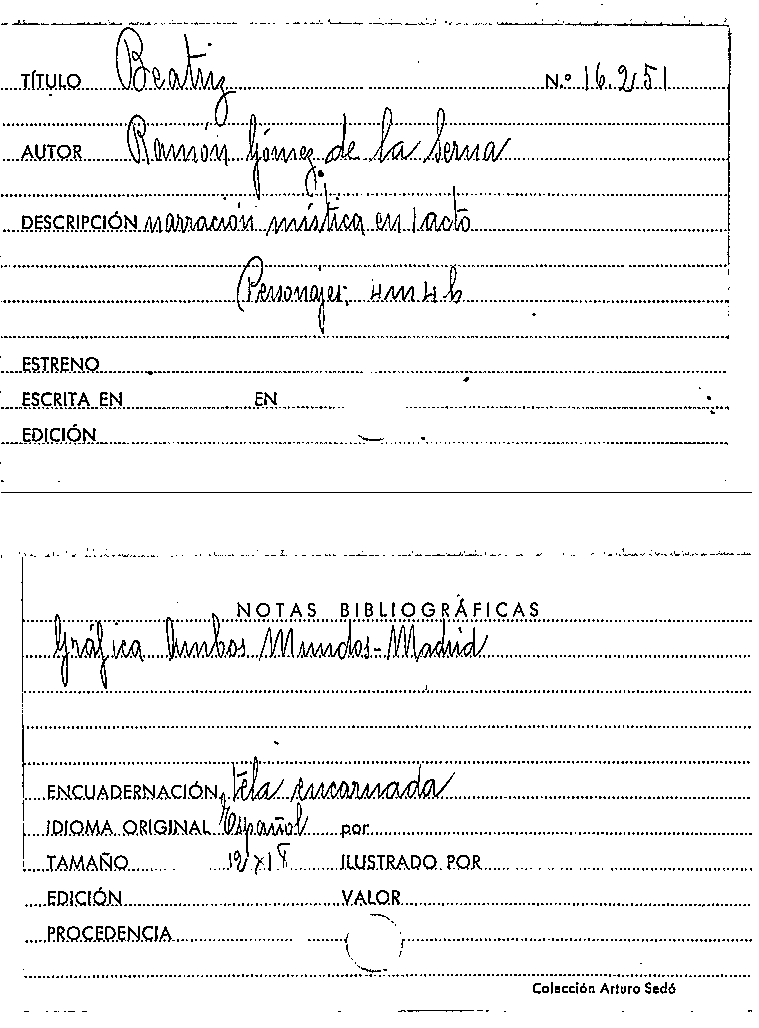 TÍTULO Beatriz N.º 16.251
AUTOR Ramón Gómez de la Serna
DESCRIPCIÓN narración mística en 1 acto
Personajes: 4m 4h
ESTRENO
ESCRITA EN EN
EDICIÓN
NOTAS BIBLIOGRÁFICAS
Gráfica Ambos Mundos-Madrid
ENCUADERNACIÓN tela encarnada
IDIOMA ORIGINAL Español por
TAMAÑO 12x18 ILUSTRADO POR
EDICIÓN VALOR
PROCEDENCIA
Colección Arturo Sedó